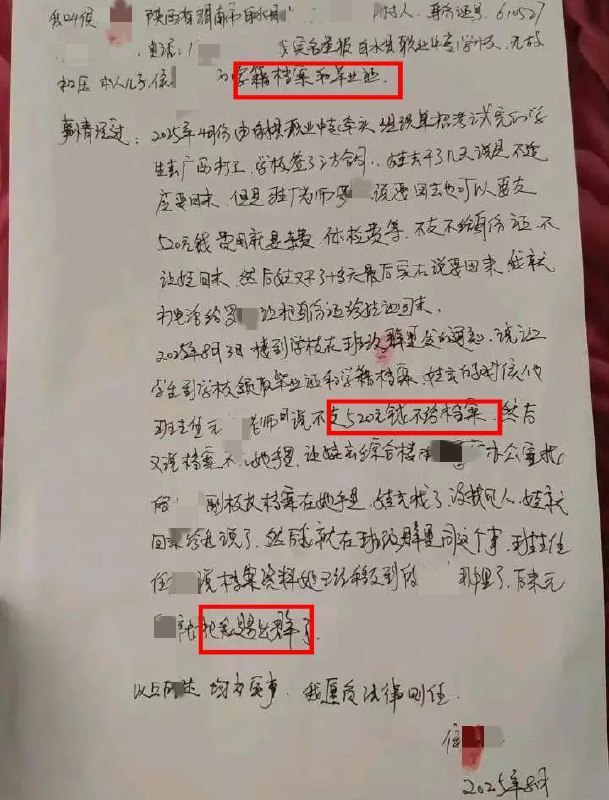 我叫侯 陕西省渭南市白水县 村人，身份证号，610527
电话：1 实名举报白水县职业中专学校，无故
扣压本人儿子侯 的学籍档案和毕业证
事情经过：2025年4月份由白水县职业中专牵头组织单招考试完的学
生去广西打工，学校签了三方合同，娃去干了几天说是不适
应要回来，但是驻厂老师罗 说要回去也可以要交
520元钱费用就是车费，体检费等，不交不给身份证，不
让娃回来，然后娃又干了十多天最后实在说要回来，我就
打电话给罗 让把身份证给娃回来。
2025年8月3日接到学校在班级群里发的通知，说让
学生到学校领取毕业证和学籍档案，娃去的时候他
班主任元 老师说不交520元钱不给档案，然后
又说档案不在她手里，让娃去综合楼 办公室找
侯 副校长档案在她手里，娃去找了，没找见人，娃就
回来给我说了，然后我就在班级群里问这个事，班主任
说档案资料她已经移交到侯 那里了，后来元
就把我踢出群了。
以上所述 均为实事，我愿负法律责任。
侯
2025年8月